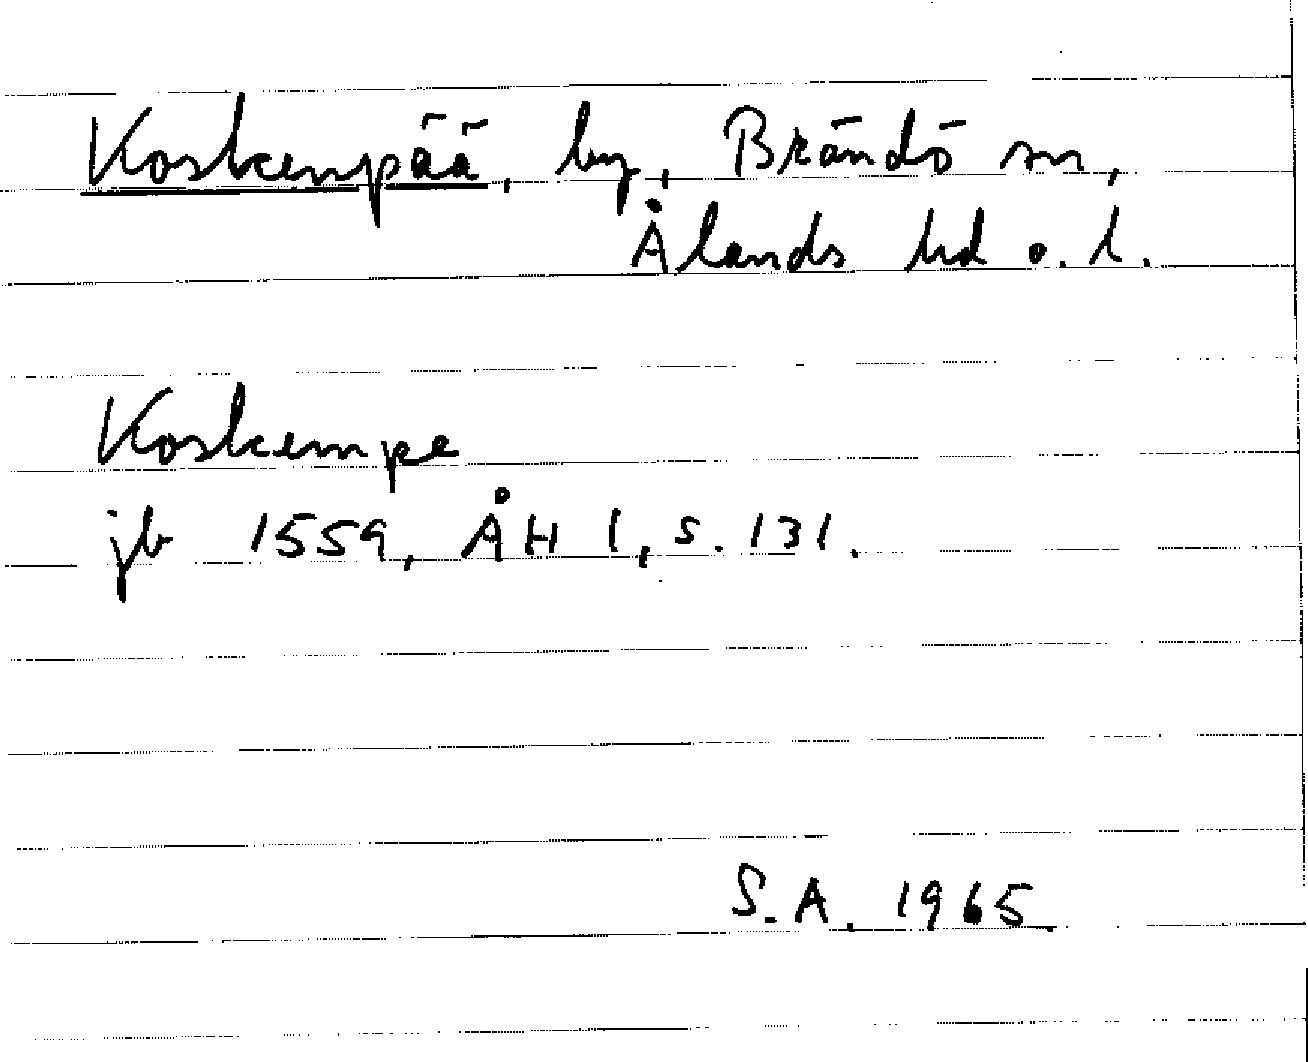 Koskenpää, by, Brändö sn,
Ålands hd o. l.
Koskempe
jb 1559, ÅH I, s. 131.
S.A. 1965.